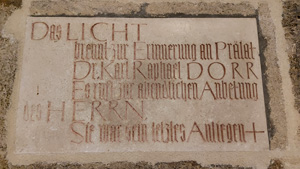 Das LICHT
brennt zur Erinnerung an Prälat
Dr. Karl Raphael DORR
Es ruft zur abendlichen Anbetung
des HERRN
Sie war sein letztes Anliegen +